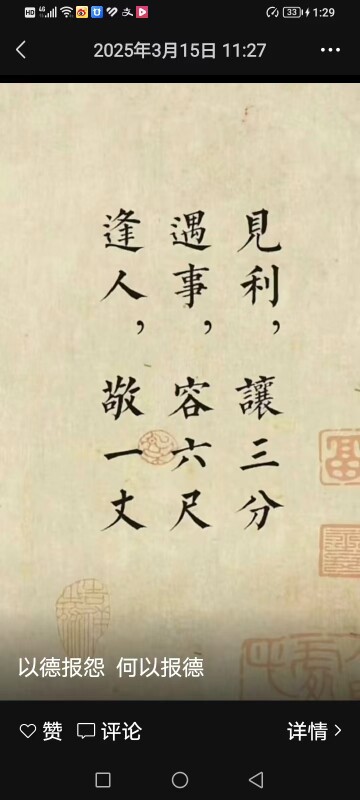 1:29
33
2025年3月15日 11:27
見利，讓三分
遇事，容六尺
逢人，敬一丈
以德报怨 何以报德
赞 评论 详情